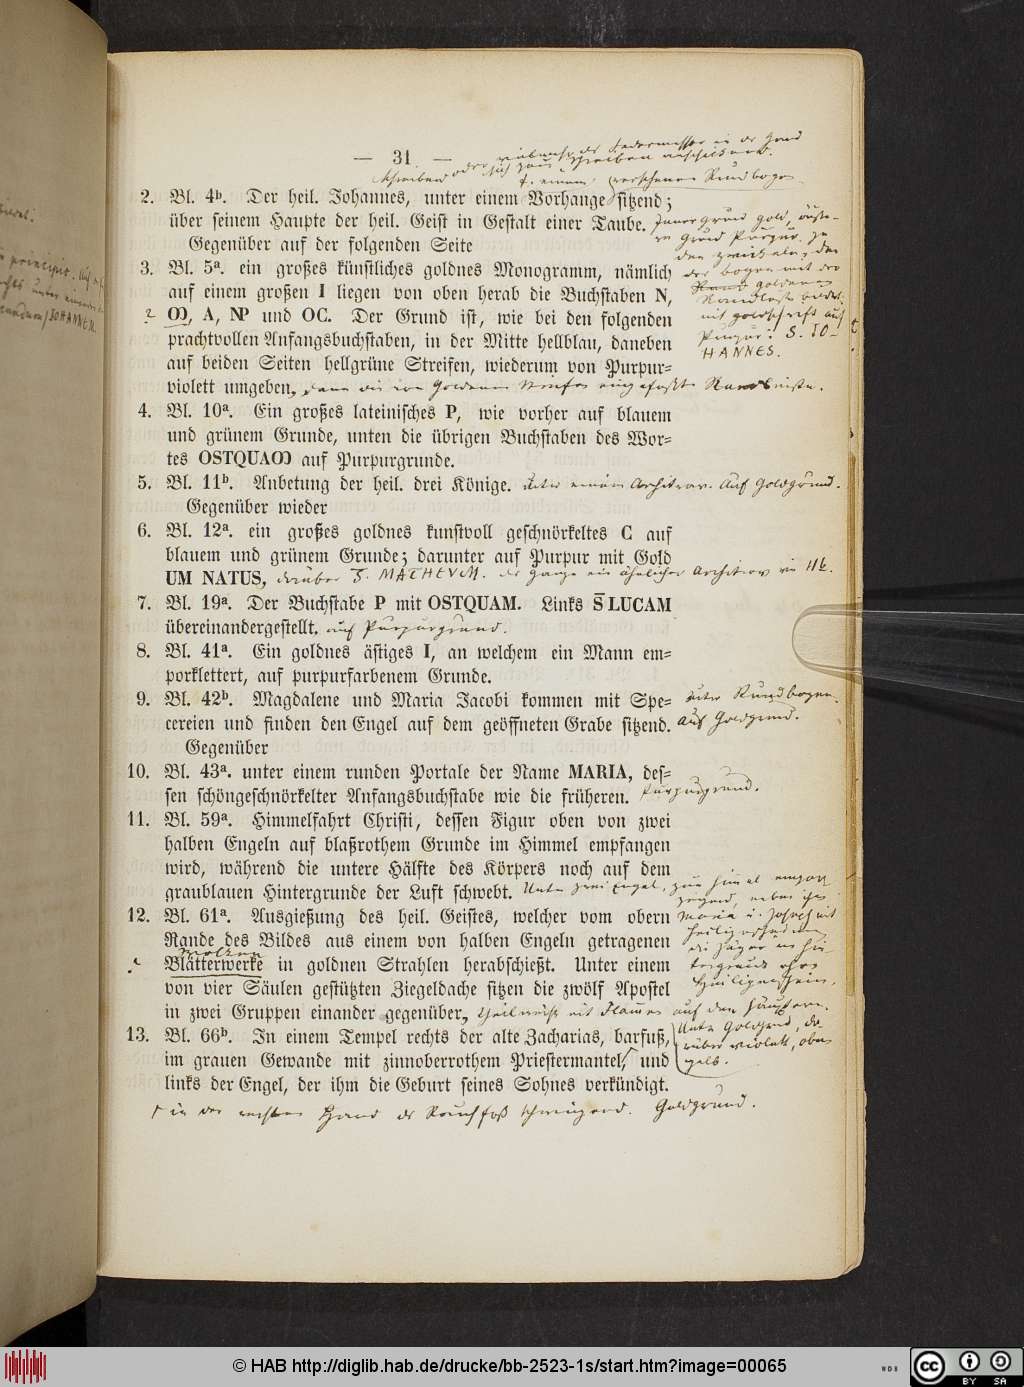 — 31 —
2. Bl. 4ᵇ. Der heil. Johannes, unter einem Vorhange sitzend;
über seinem Haupte der heil. Geist in Gestalt einer Taube.
Gegenüber auf der folgenden Seite
3. Bl. 5ᵃ. ein großes künstliches goldnes Monogramm, nämlich
auf einem großen I liegen von oben herab die Buchstaben N,
Ꝏ, A, NP und OC. Der Grund ist, wie bei den folgenden
prachtvollen Anfangsbuchstaben, in der Mitte hellblau, daneben
auf beiden Seiten hellgrüne Streifen, wiederum von Purpur=
violett umgeben,
S. IO-
HANNES.
4. Bl. 10ᵃ. Ein großes lateinisches P, wie vorher auf blauem
und grünem Grunde, unten die übrigen Buchstaben des Wor=
tes OSTQUAꝎ auf Purpurgrunde.
5. Bl. 11ᵇ. Anbetung der heil. drei Könige. unter einem Architrav. Auf Goldgrund.
Gegenüber wieder
6. Bl. 12ᵃ. ein großes goldnes kunstvoll geschnörkeltes C auf
blauem und grünem Grunde; darunter auf Purpur mit Gold
UM NATUS, darüber S. MATHEUM. das ganze ein ähnlicher Architrav wie 11b.
7. Bl. 19ᵃ. Der Buchstabe P mit OSTQUAM. Links S̄ LUCAM
übereinandergestellt. auf Purpurgrund.
8. Bl. 41ᵃ. Ein goldnes ästiges I, an welchem ein Mann em=
porklettert, auf purpurfarbenem Grunde.
9. Bl. 42ᵇ. Magdalene und Maria Jacobi kommen mit Spe=
cereien und finden den Engel auf dem geöffneten Grabe sitzend.
unter Rundbogen.
auf Goldgrund.
Gegenüber
10. Bl. 43ᵃ. unter einem runden Portale der Name MARIA, des=
sen schöngeschnörkelter Anfangsbuchstabe wie die früheren. Purpurgrund.
11. Bl. 59ᵃ. Himmelfahrt Christi, dessen Figur oben von zwei
halben Engeln auf blaßrothem Grunde im Himmel empfangen
wird, während die untere Hälfte des Körpers noch auf dem
graublauen Hintergrunde der Luft schwebt. Unten zwei Engel,
12. Bl. 61ᵃ. Ausgießung des heil. Geistes, welcher vom obern
Rande des Bildes aus einem von halben Engeln getragenen
Wolken
Blätterwerke in goldnen Strahlen herabschießt. Unter einem
von vier Säulen gestützten Ziegeldache sitzen die zwölf Apostel
in zwei Gruppen einander gegenüber, theilweise mit Flammen auf den Häuptern.
13. Bl. 66ᵇ. In einem Tempel rechts der alte Zacharias, barfuß,
im grauen Gewande mit zinnoberrothem Priestermantel, und
links der Engel, der ihm die Geburt seines Sohnes verkündigt.
Unten Goldgrund, da-
rüber violett, oben
gelb.
in der rechten Hand das Rauchfaß schwingend. Goldgrund.
© HAB http://diglib.hab.de/drucke/bb-2523-1s/start.htm?image=00065
WDB
cc BY SA